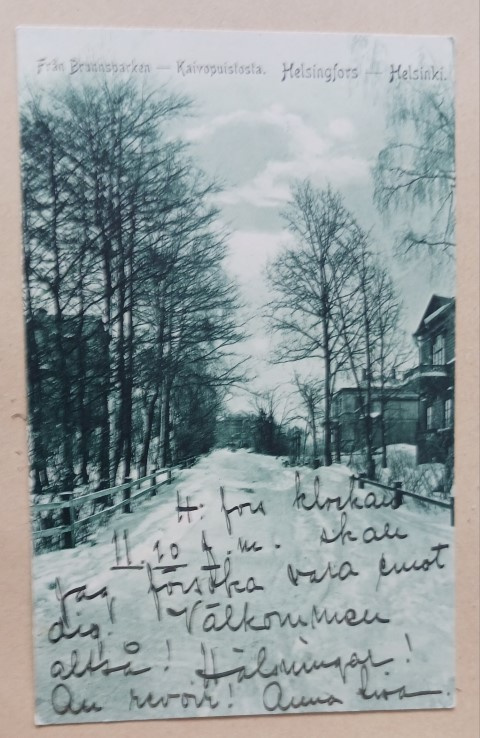 Från Brunnsparken — Kaivopuistosta. Helsingfors — Helsinki.
H:fors klockan
11.10 f.m. skall
jag försöka vara emot
dig! Välkommen
alltså! Hälsningar!
Au revoir! Anna Lisa